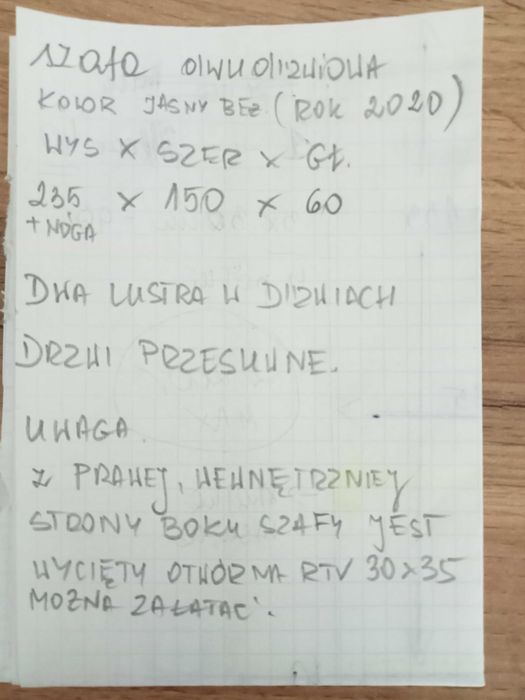 SZAFA DWUDRZWIOWA
KOLOR JASNY BEŻ. (ROK 2020)
WYS X SZER X GŁ.
235 X 150 X 60
+ NOGA
DWA LUSTRA W DRZWIACH
DRZWI PRZESUWNE.
UWAGA.
Z PRAWEJ, WEWNĘTRZNIEJ
STRONY BOKU SZAFY JEST
WYCIĘTY OTWÓR NA RTV 30x35
MOŻNA ZAŁATAĆ.